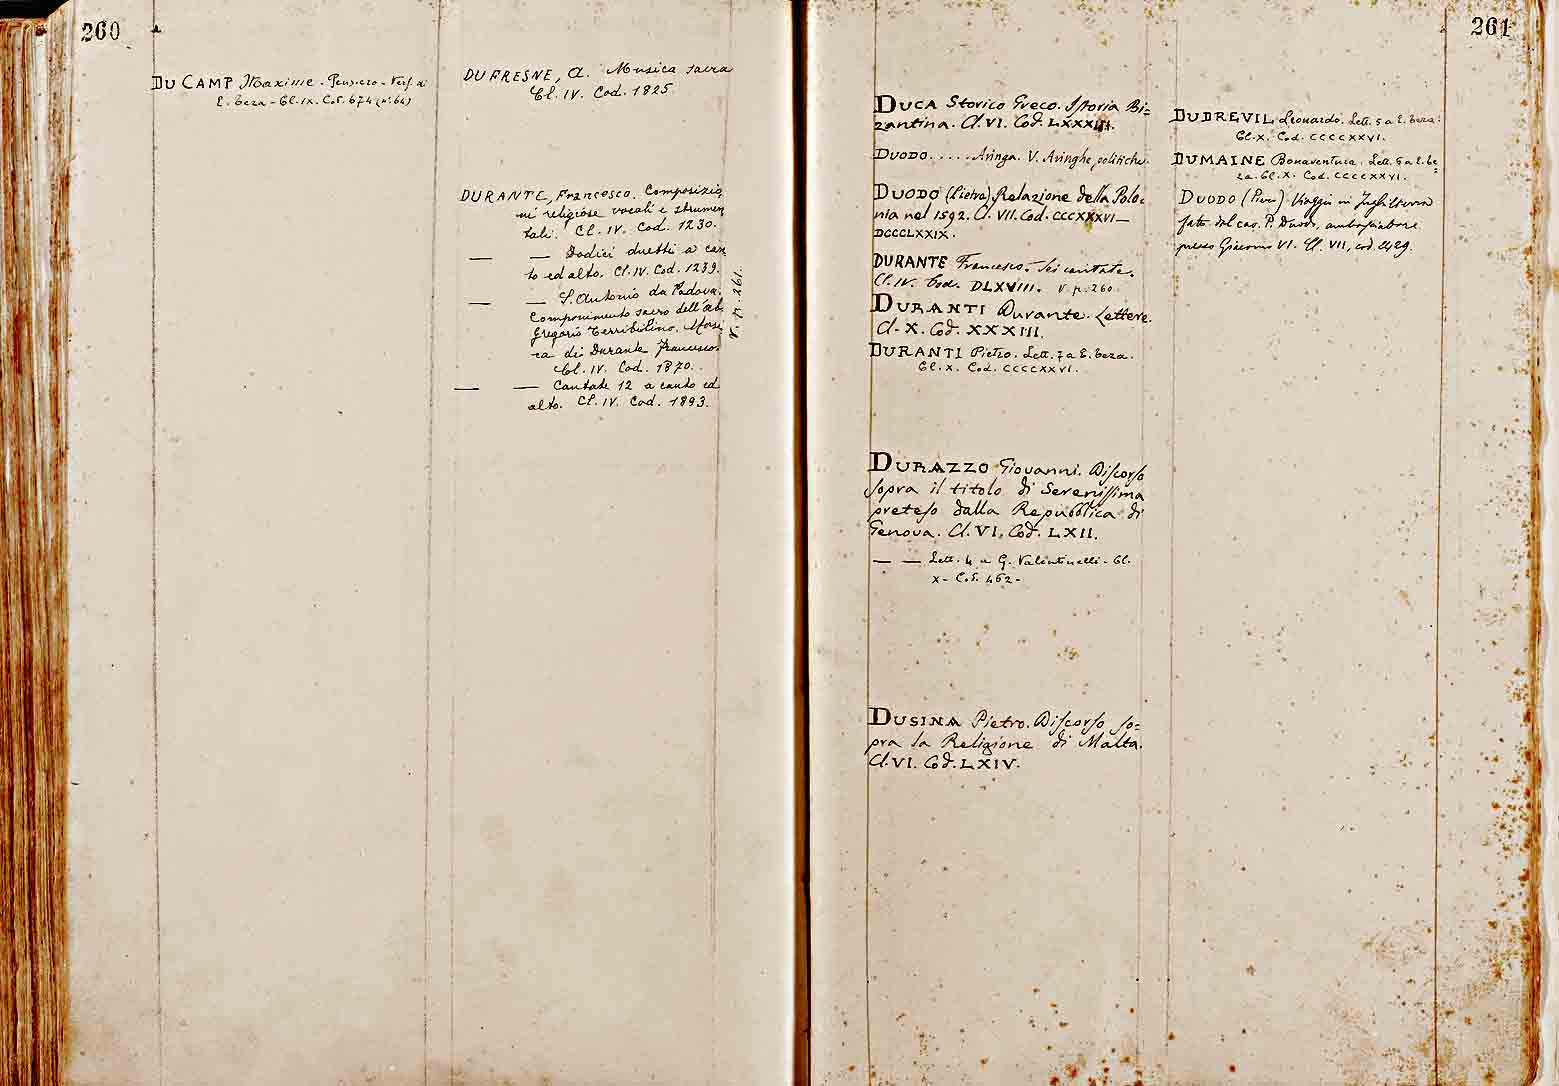 260
DU CAMP Maxime - Pensiero - Vers. di
E. Teza - Cl. IX. Cod. 674 (nº 64)
DUFRESNE, A. Musica sacra
Cl. IV. Cod. 1825
DURANTE, Francesco. Composizio,
ni religiose vocali e strumen
tali. Cl. IV. Cod. 1230.
— — Dodici duetti a can
to ed alto. Cl. IV. Cod. 1239.
— — S. Antonio da Padova.
Componimento sacro dell'ab.
Gregorio Terribilino. Musi
ca di Durante Francesco.
Cl. IV. Cod. 1870.
— — Cantate 12 a canto ed
alto. Cl. IV. Cod. 1893.
V. p. 261.
261
DUCA Storico Greco. Istoria Bi=
zantina. Cl. VI. Cod. LXXXIII.
DUODO..... Aringa. V. Aringhe politiche.
DUODO (Pietro) Relazione della Polo-
nia nel 1592. Cl. VII. Cod. CCCXXXVI—
DCCCLXXIX.
DURANTE Francesco. Sei cantate.
Cl. IV. Cod. DLXVIII. V. p. 260.
DURANTI Durante. Lettere.
Cl. X. Cod. XXXIII.
DURANTI Pietro. Lett. 7 a E. Teza.
Cl. X. Cod. CCCCXXVI.
DURAZZO Giovanni. Discorso
sopra il titolo di Serenissima
preteso dalla Repubblica di
Genova. Cl. VI. Cod. LXII.
— — Lett. 4 a G. Valentinelli - Cl.
X - Cod. 462 -
DUSINA Pietro. Discorso so=
pra la Religione di Malta.
Cl. VI. Cod. LXIV.
DUDREVIL Leonardo. Lett. 5 a E. Teza:
Cl. X. Cod. CCCCXXVI.
DUMAINE Bonaventura. Lett. 5 a E. Te=
za. Cl. X. Cod. CCCCXXVI.
DUODO (Piero) Viaggio in Inghilterra
fatto dal cav. P. Duodo, ambasciatore
presso Giacomo VI. Cl. VII, cod. 2429.